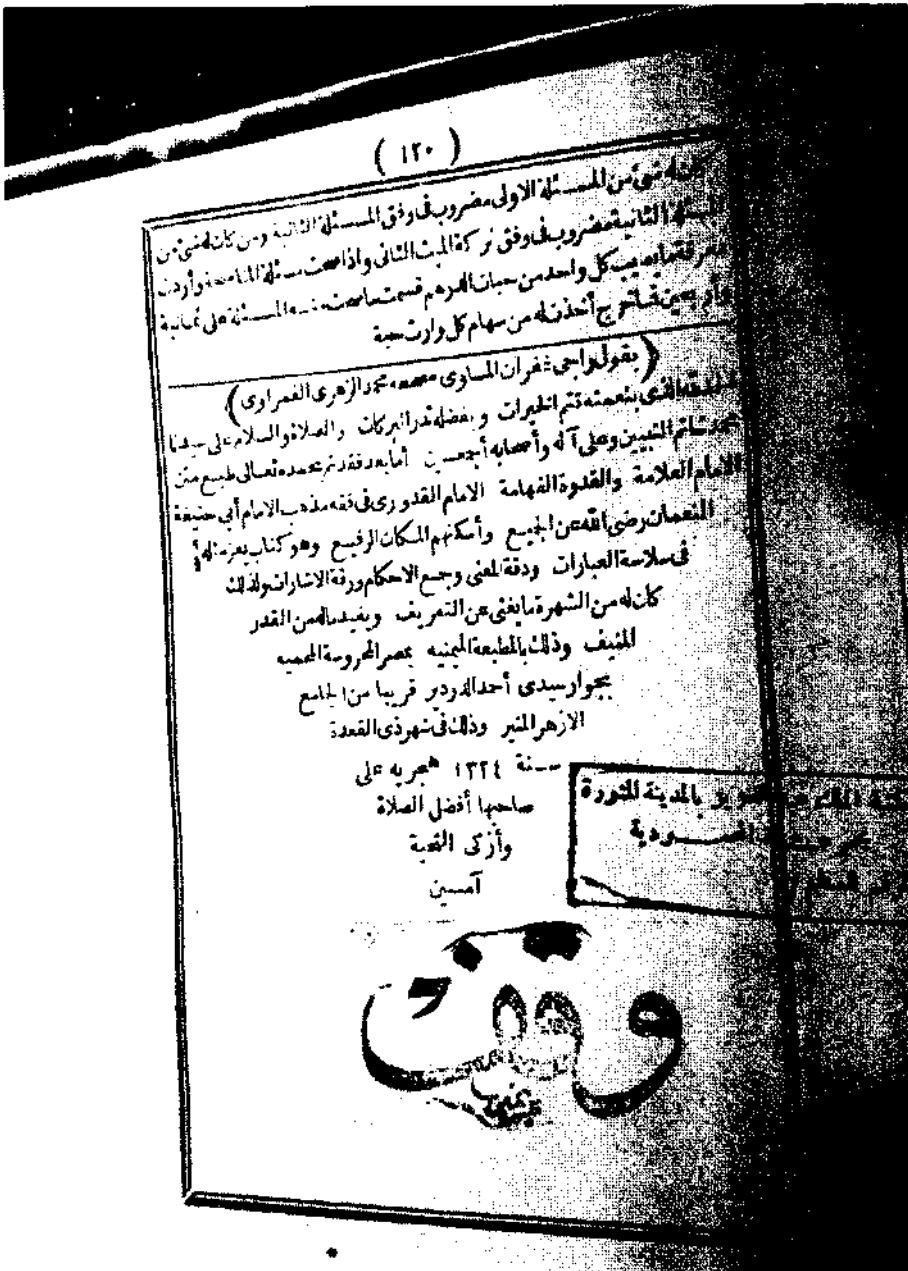 ( ١٢٠ )
كان له شئ من المسئلة الاولى مضروب فى وفق المسئلة الثانية ومن كان له شئ من
المسئلة الثانية مضروب فى وفق تركة الميت الثانى واذا صحت مسئلة المناسخة وأردت
معرفة ما يصيب كل واحد من حبات الدرهم قسمت ما صحت منه المسئلة على ثمانية
وأربعين فما خرج أخذت له من سهام كل وارث حبة
( يقول راجى غفران المساوى مصححه محمد الزهرى الغمراوى )
الحمد لله الذى بنعمته تتم الخيرات وبفضله تدر البركات والصلاة والسلام على سيدنا
محمد خاتم النبيين وعلى آله وأصحابه أجمعين أما بعد فقد تم بحمده تعالى طبع متن
الامام العلامة والقدوة الفهامة الامام القدورى فى فقه مذهب الامام أبى حنيفة
النعمان رضى الله عن الجميع وأسكنهم المكان الرفيع وهو كتاب يعز مثله
فى سلاسة العبارات ودقة المعنى وجمع الاحكام ورقة الاشارات ولذلك
كان له من الشهرة ما يغنى عن التعريف ويفيد ماله من القدر
المنيف وذلك بالمطبعة الميمنيه بمصر المحروسة المحميه
بجوار سيدى أحمد الدردير قريبا من الجامع
الازهر المنير وذلك فى شهر ذى القعدة
سنة ١٣٢٤ هجريه على
صاحبها أفضل الصلاة
وأزكى التحية
آمسين
بالمدينة المنورة
السعودية